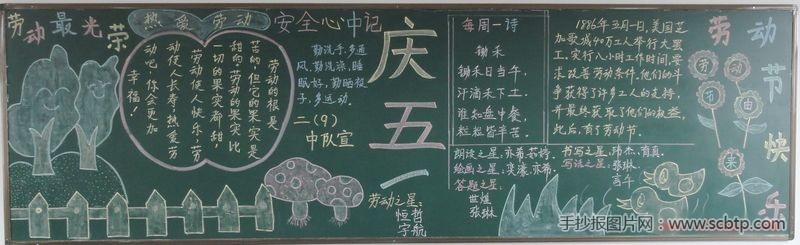 劳动最光荣
热爱劳动
劳动的根是
苦的,但它的果实是
甜的,劳动的果实比
一切的果实都甜,
劳动使人快乐,劳
动使人长寿,热爱劳
动吧,你会更加
幸福!
安全心中记
勤洗手,多通
风,勤洗澡,睡
眠好,勤晒被
子,多运动。
二(9)
中队宣
庆五一
劳动之星:
恒哲
宇航
每周一诗
锄禾
锄禾日当午,
汗滴禾下土。
谁知盘中餐,
粒粒皆辛苦。
朗读之星:亦希.芸婷.
绘画之星:奕濠.亦希.
答题之星:
世煜
张琳
1886年五月一日,美国芝
加歌城40万工人举行大罢
工,实行八小时工作时间,要
求改善劳动条件,他们的斗
争获得了许多工人的支持,
并最终获取了他们的权益,
此后,有了劳动节。
书写之星:玮杰.有真.
写话之星:张琳.
劳动节由来
劳动节快乐
手抄报图片网:www.scbtp.com